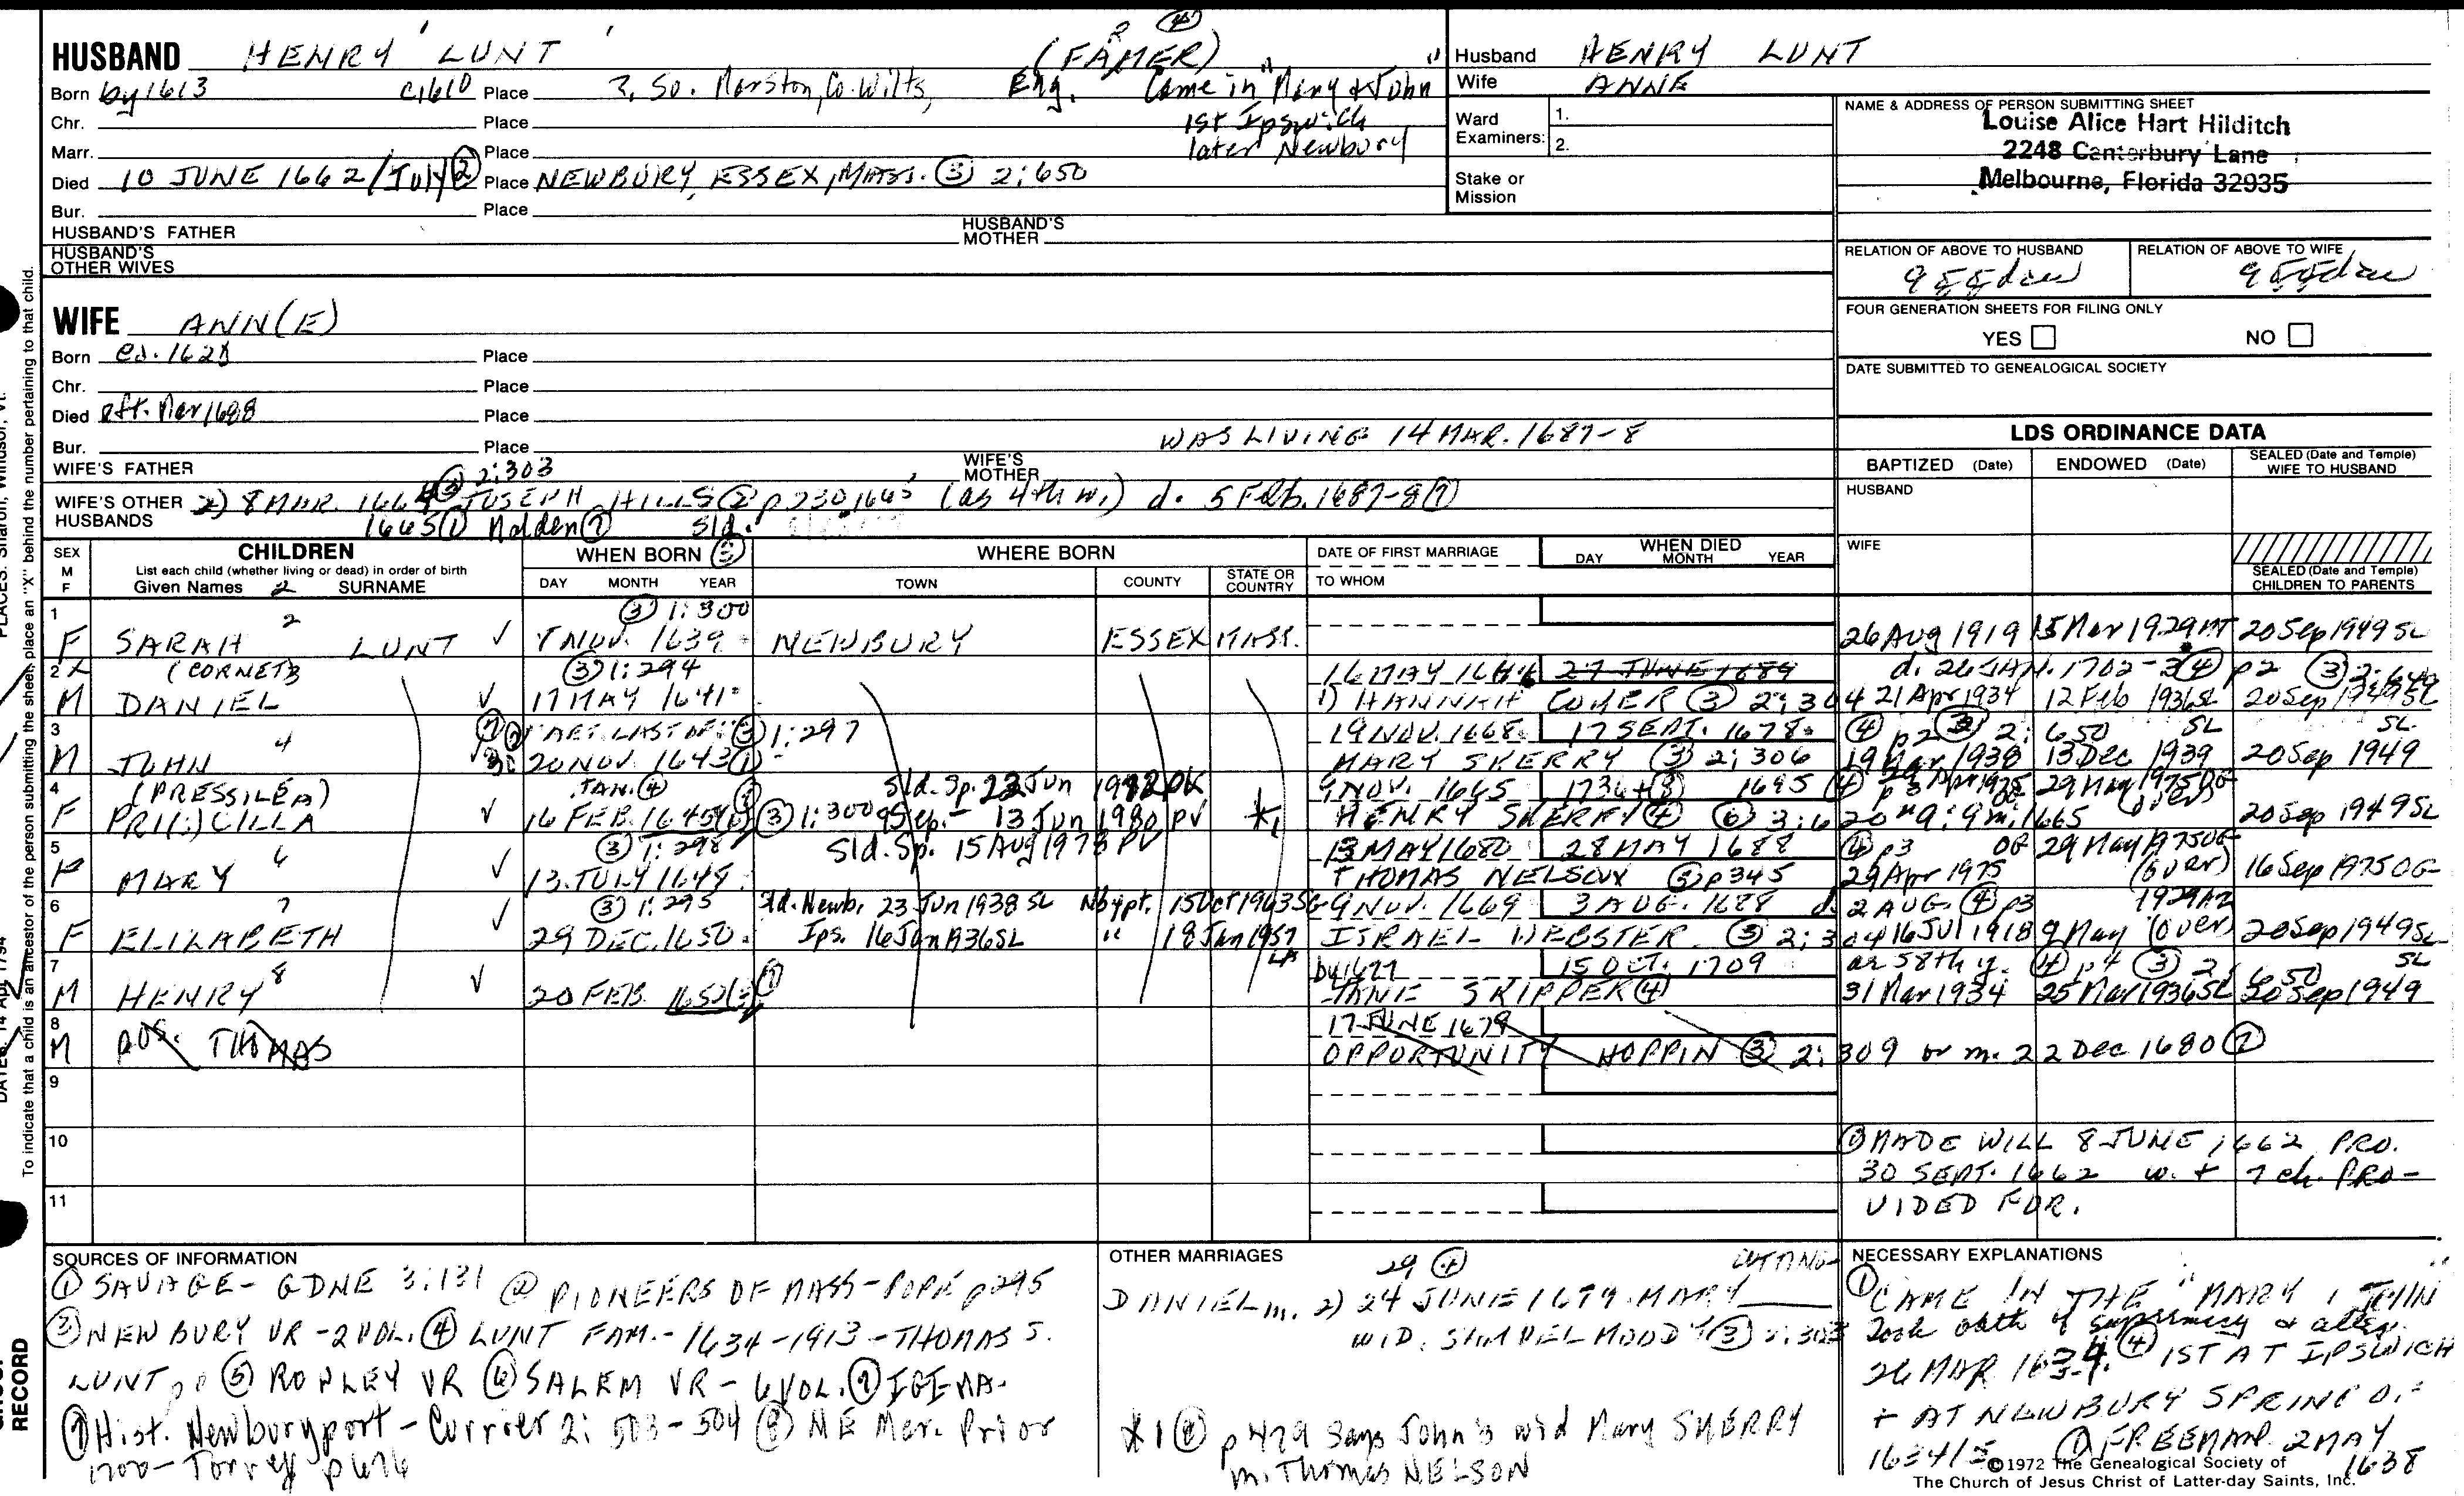 HUSBAND HENRY LUNT (FARMER) ④
Born by 1613 c1610 Place ?, So. Marston, Co. Wilts, Eng. Came in "Mary & John"
Chr. Place 1st Ipswich
Marr. Place later Newbury
Died 10 JUNE 1662/July② Place NEWBURY, ESSEX, MASS. ③ 2:650
Bur. Place
HUSBAND'S FATHER HUSBAND'S MOTHER
HUSBAND'S OTHER WIVES
WIFE ANN(E)
Born Place
Chr. Place
Died aft. Mar 1688 Place
Bur. Place WAS LIVING 14 MAR. 1687-8
WIFE'S FATHER ③ 2:303 WIFE'S MOTHER
WIFE'S OTHER HUSBANDS 2) 8 MAR. 1664 ③ JOSEPH HILLS ② p230, 1665 (as 4th w.) d. 5 Feb. 1687-8⑦
1665① Malden⑦ Sld.
Husband HENRY LUNT
Wife ANNE
Ward Examiners: 1.
2.
Stake or Mission
NAME & ADDRESS OF PERSON SUBMITTING SHEET
Louise Alice Hart Hilditch
2248 Canterbury Lane
Melbourne, Florida 32935
RELATION OF ABOVE TO HUSBAND RELATION OF ABOVE TO WIFE
9ggdau 9ggdau
FOUR GENERATION SHEETS FOR FILING ONLY
YES NO
DATE SUBMITTED TO GENEALOGICAL SOCIETY
LDS ORDINANCE DATA
BAPTIZED (Date) ENDOWED (Date) SEALED (Date and Temple) WIFE TO HUSBAND
HUSBAND
WIFE
SEALED (Date and Temple) CHILDREN TO PARENTS
SEX M F CHILDREN WHEN BORN ③ WHERE BORN DATE OF FIRST MARRIAGE WHEN DIED
List each child (whether living or dead) in order of birth
Given Names 2 SURNAME DAY MONTH YEAR TOWN COUNTY STATE OR COUNTRY TO WHOM DAY MONTH YEAR
1 2 ③ 1:300
F SARAH LUNT ✓ NOV. 1639 NEWBURY ESSEX MASS. 26 Aug 1919 15 Mar 1929 MT 20 Sep 1949 SL
2 X (CORNET) 3 ③ 1:294 16 MAY 1664 27 JUNE 1689 d. 26 JAN. 1702-3 ④ p2 ③ 2:
M DANIEL ✓ 17 MAY 1641 1) HANNAH COKER ③ 2:304 21 Apr 1934 12 Feb 1936 SL 20 Sep 1949 SL
3 4 LAST OF ③ 1:297 19 NOV. 1668 17 SEPT. 1678 ④ p2 ③ 2:650 SL SL
M JOHN ✓ 20 NOV. 1643① MARY SKERRY ③ 2:306 19 Mar 1938 13 Dec 1939 20 Sep 1949
4 (PRESSILEA) JAN.④ Sld. Sp. 23 Jun 9 NOV. 1665 1736 1695 ④ p3 29 Apr 1975 OG 29 May 1975 OG
F PRI(:)CILLA ✓ 16 FEB. 1645 ③ 1:300 13 Jun 1980 PV *1 HENRY SKERRY④ ⑥ 3:620 1665 (over) 20 Sep 1949 SL
5 6 ③ 1:298 Sld. Sp. 15 Aug 1978 PV 13 MAY 1680 28 MAY 1688 ④ p3 OG 29 May 1975 OG
F MARY ✓ 13 JULY 1648 THOMAS NELSON ⑤ p345 29 Apr 1975 (over) 16 Sep 1975 OG
6 7 ③ 1:295 Sld. Newb. 23 Jun 1938 SL Nbypt. 15 Oct 1963 SG 9 NOV. 1669 3 AUG. 1688 d. 2 AUG. ④ p3 1929 AZ
F ELIZABETH ✓ 29 DEC. 1650 Ips. 16 Jan 1936 SL " 18 Jan 1957 LA ISRAEL WEBSTER ③ 2:304 16 Jul 1918 9 May (over) 20 Sep 1949 SL
7 8 by 1677 15 OCT. 1709 ae 58th y. ④ p4 ③ 2:650 SL
M HENRY ✓ 20 FEB. 1652 ① JANE SKIPPER④ 31 Mar 1934 25 Mar 1936 SL 20 Sep 1949
8 17 JUNE 1679
M pos. THOMAS OPPORTUNITY HOPPIN ③ 2:309 or m. 22 Dec 1680⑦
9
10
11
MADE WILL 8 JUNE 1662, PRO.
30 SEPT. 1662 w. + 7 ch. PRO-
VIDED FOR.
SOURCES OF INFORMATION
① SAVAGE- GDNE 3:131 ② PIONEERS OF MASS-POPE p295
③ NEWBURY VR -2 VOL. ④ LUNT FAM.- 1634-1913 -THOMAS S.
LUNT, ⑤ ROWLEY VR ⑥ SALEM VR - 6 VOL. ⑦ IGI-MA.
⑦ Hist. Newburyport - Currier 2: 503-504 ⑧ NE Mar. Prior
1700- Torrey p476
OTHER MARRIAGES
29 ④
DANIEL m. 2) 24 JUNE 1679 MARY
WID. SAMUEL MOODY ③
*1 ⑧ p429 says John's wid Mary SHERRY
m. Thomas NELSON
NECESSARY EXPLANATIONS
① CAME IN THE "MARY & JOHN"
Took oath of supremacy & alleg.
26 MAR 1634. ④ 1ST AT IPSWICH
+ AT NEWBURY SPRING OF
1634/5 ① FREEMAN 2 MAY
1638
©1972 The Genealogical Society of
The Church of Jesus Christ of Latter-day Saints, Inc.
To indicate that a child is an ancestor of the person submitting the sheet, place an "X" behind the number pertaining to that child.
RECORD